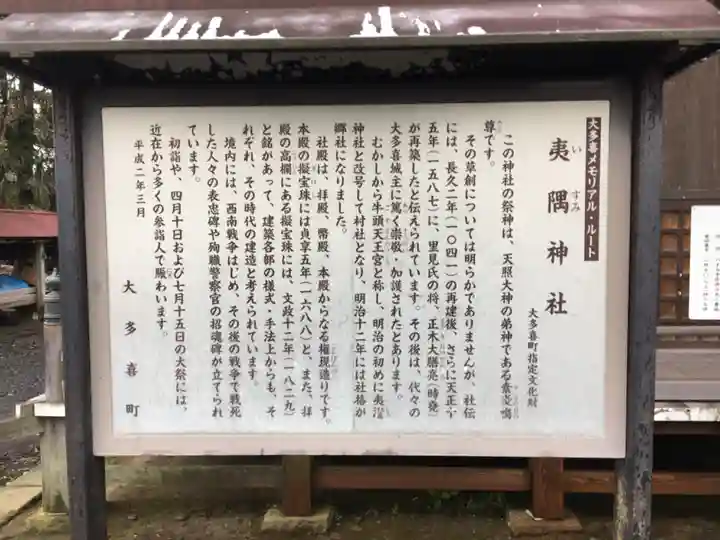 大多喜メモリアル・ルート
夷隅神社
い すみ
大多喜町指定文化財
この神社の祭神は、天照大神の弟神である素戔嗚
尊です。
その草創については明らかでありませんが、社伝
には、長久二年(一〇四一)の再建後、さらに天正十
五年(一五八七)に、里見氏の将、正木大膳亮(時堯)
が再築したと伝えられています。その後は、代々の
大多喜城主に篤く崇敬・加護されたとあります。
むかしから牛頭天王宮と称し、明治の初めに夷隅
神社と改号して村社となり、明治十二年には社格が
郷社になりました。
社殿は、拝殿、幣殿、本殿からなる権現造りです。
本殿の擬宝珠には貞享五年(一六八八)と、また、拝
殿の高欄にある擬宝珠には、文政十二年(一八二九)
と銘があって、建築各部の様式・手法上からも、そ
れぞれ、その時代の建造と考えられています。
境内には、西南戦争はじめ、その後の戦争で戦死
した人々の表忠碑や殉職警察官の招魂碑が立てられ
ています。
初詣や、四月十日および七月十五日の大祭には、
近在から多くの参詣人で賑わいます。
平成二年三月
大多喜町